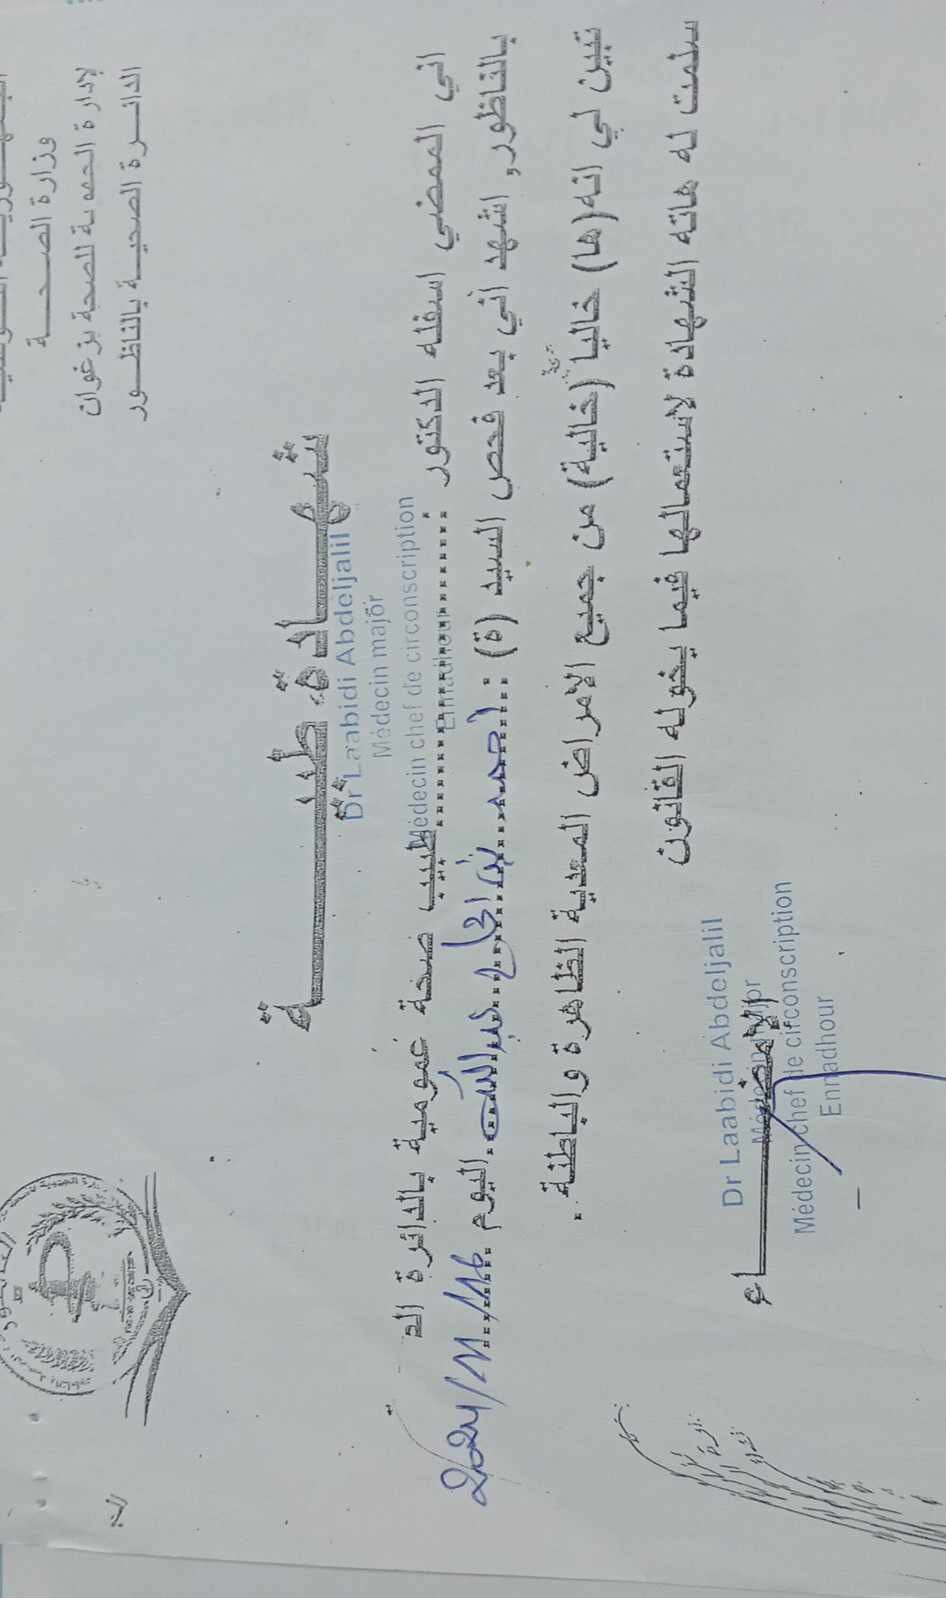 وزارة الصحة
الإدارة الجهوية للصحة بزغوان
الدائرة الصحية بالناظور
شهادة طبية
Dr Laabidi Abdeljalil
Médecin major
Médecin chef de circonscription
Ennadhour
اني الممضي اسفله الدكتور
طبيب صحة عمومية بالدائرة
بالناظور, اشهد أني بعد فحص السيد (ة) : احمد بن الحاج عبد الله اليوم 2024/11/16
تبين لي انه(ها) خاليا (خالية) من جميع الامراض المعدية الظاهرة والباطنة .
سلمت له هاته الشهادة لاستعمالها فيما يخوله القانون
الامضاء
Dr Laabidi Abdeljalil
Médecin major
Médecin chef de circonscription
Ennadhour